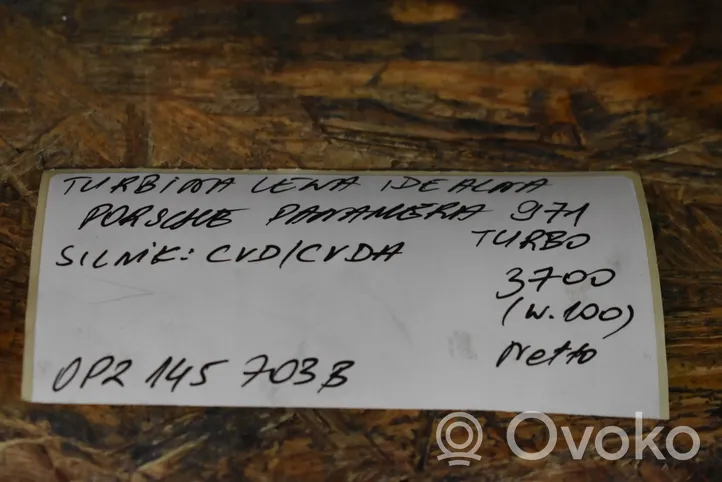 TURBINA LEWA IDEALNA
PORSCHE PANAMERA 971
TURBO
SILNIK: CVD/CVDA
3700
(W.100)
Netto
0P2 145 703B
Ovoko